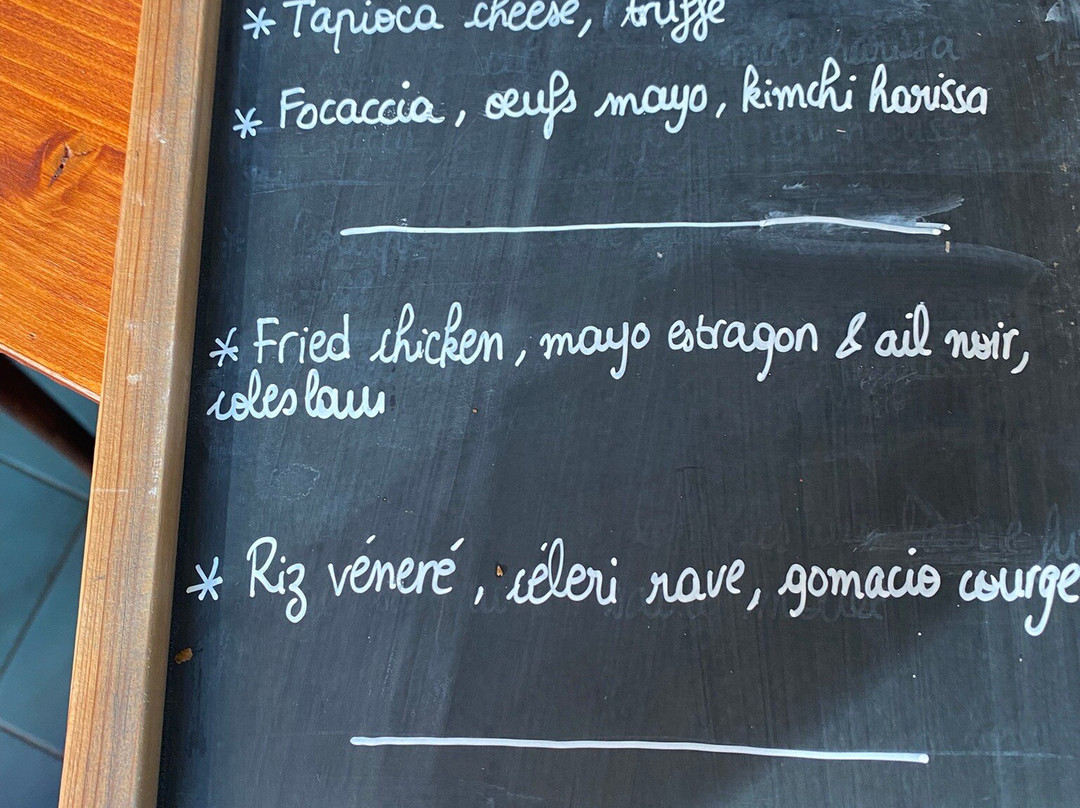 * Tapioca cheese, truffe
* Focaccia, œufs mayo, kimchi harissa
* Fried chicken, mayo estragon & ail noir,
coleslaw
* Riz véneré, céleri rave, gomacio courge